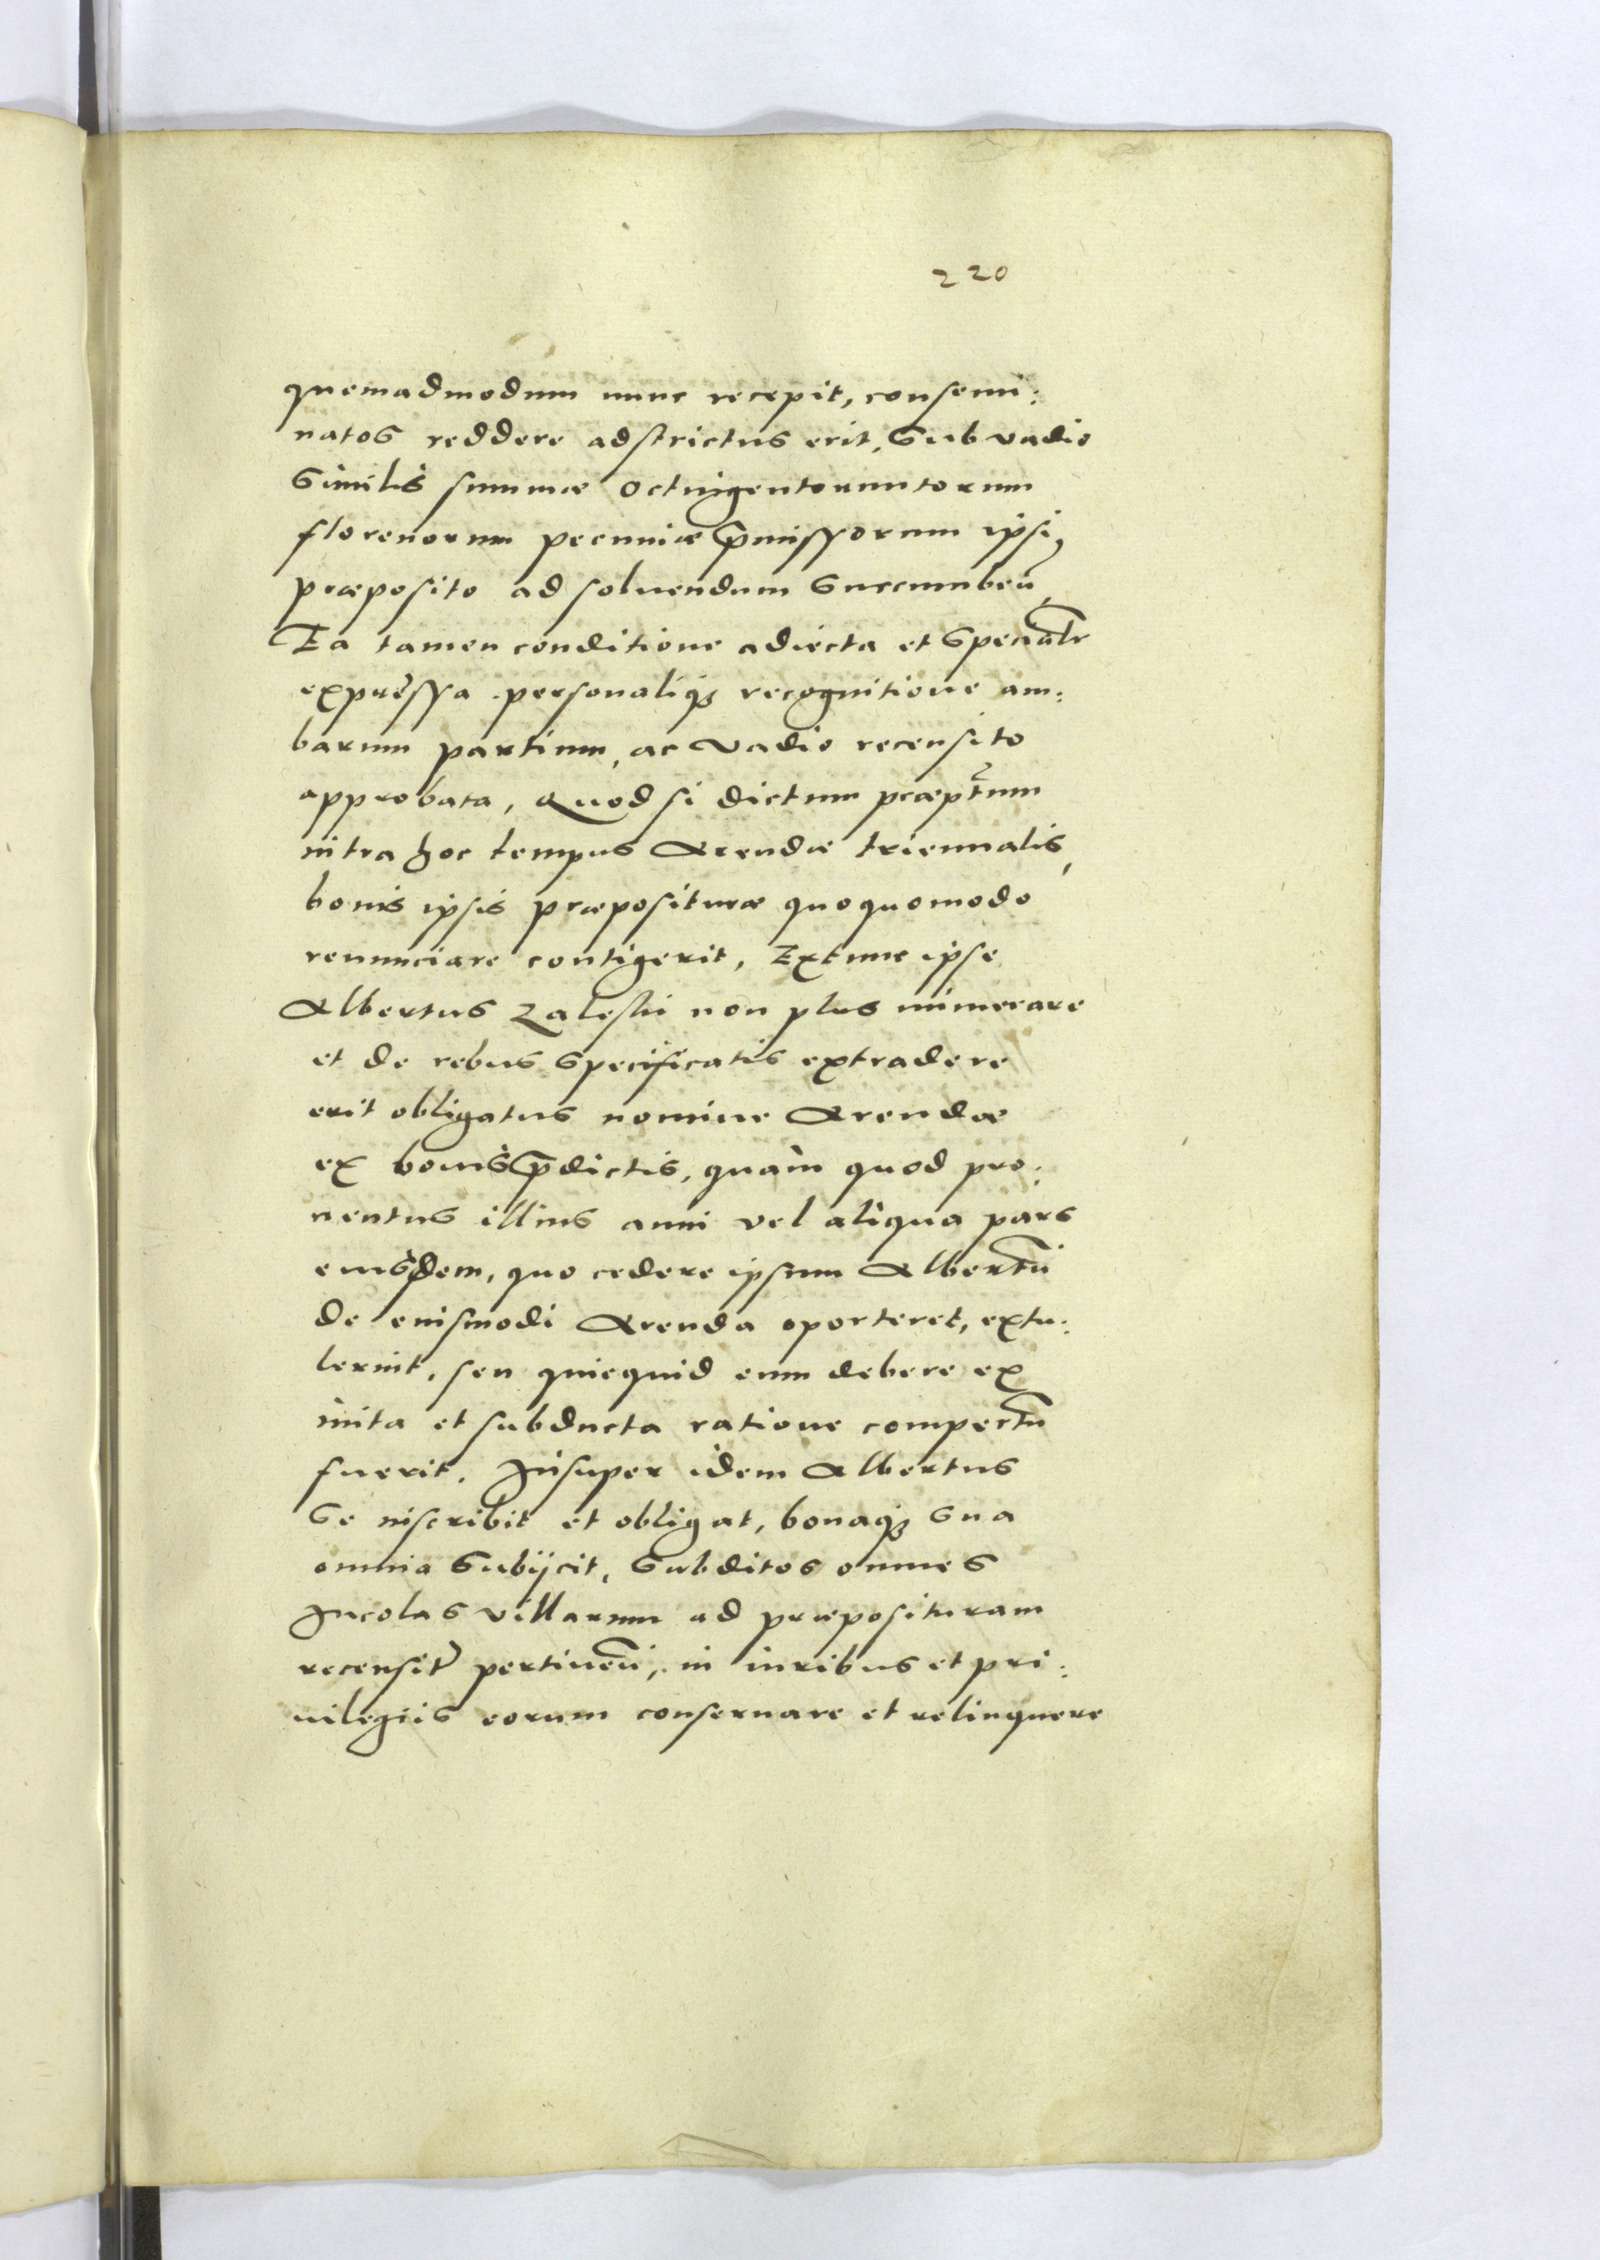 220
quemadmodum nunc recepit, consemi:
natos reddere adstrictus erit, Sub vadio
Similis summæ octuigentorumtorum
florenorum pecuniæ p̄missorum ipsi,
præposito ad soluendum Succumbeñ
Ea tamen conditione adiecta et Speciatr̄
expressa personaliqꝫ recognitione am:
barum partium, ac vadio recensito
approbata, Quod si dictum præpt̄um
intra hoc tempus Arendæ triennalis,
bonis ipsis præposituræ quoquomodo
renunciare contigerit, Extunc ipse
Albertus Zaleski non plus numerare
et de rebus Specificatis extradere
erit obligatus nomine Arendæ
ex bonis p̄dictis, quàm quod pro:
uentus illius anni vel aliqua pars
eiusdem, quo cedere ipsum Albertū
de eiusmodi Arenda oporteret, extu:
lerint, seu quicquid eum debere ex
inita et subducta ratione compertū
fuerit. Insuper idem Albertus
Se inscribit et obligat, bonaqꝫ Sua
omnia Subijcit, Subditos omnes
Incolas villarum ad præposituram
recensit̄ pertineñ, in iuribus et pri:
uilegiis eorum conseruare et relinquere